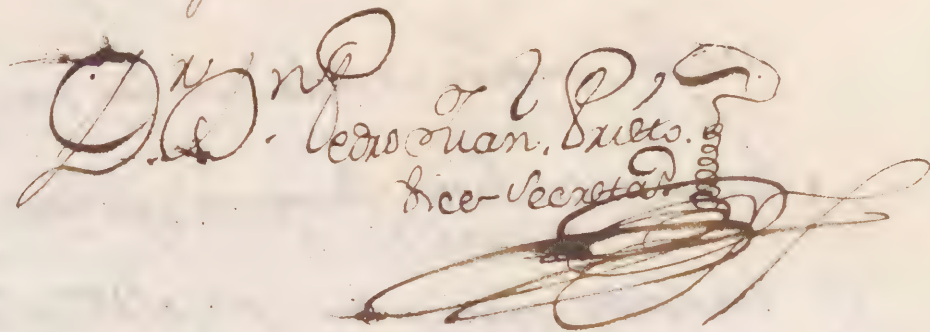 Dr. Dn. Pedro Juan. Prieto.
Vice-Secreta